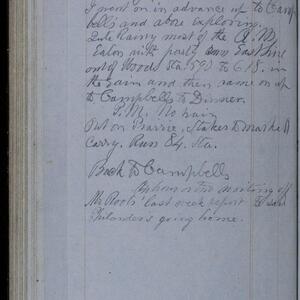 I went on in advance up to Camp
bells and above exploring.
Quite Rainy most of the A.M.
Eaton with party run East line
out of Woods Sta. 597 to 618. in
the rain and then came on up
to Campbells to Dinner.
P.M. No rain
Put on Prairie, Stakes & marked
Carry. Run 84 Sta.
Back to Campbells
An hour or two writing off
Mr Roots' last week report & saw
Philanders going home.